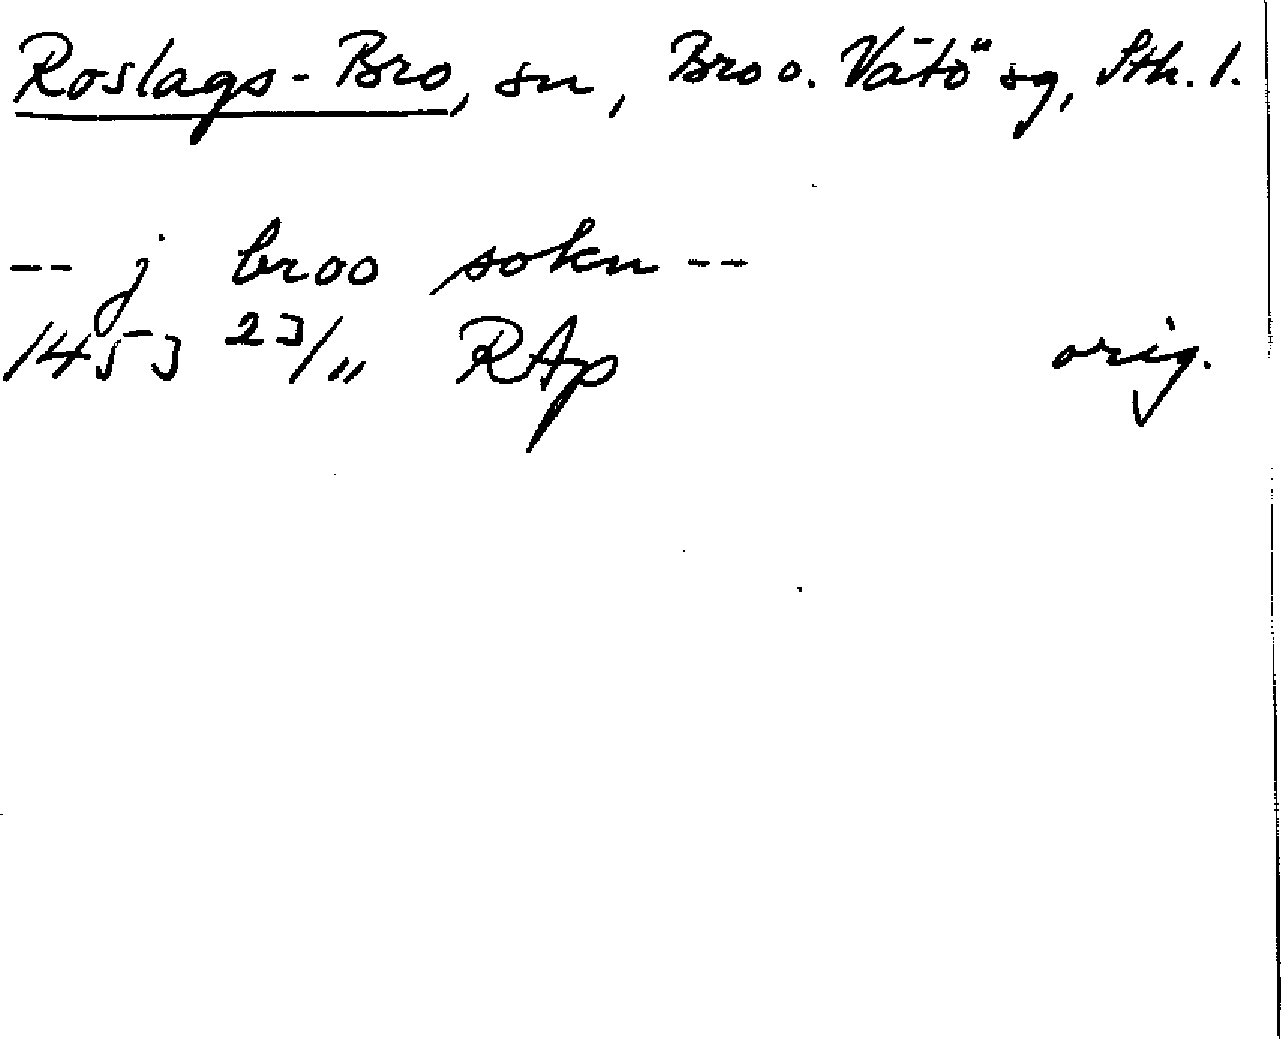 Roslags-Bro, sn, Bro o. Vätö sg, Sth. l.
-- j broo sokn --
1453 23/11 RAp orig.